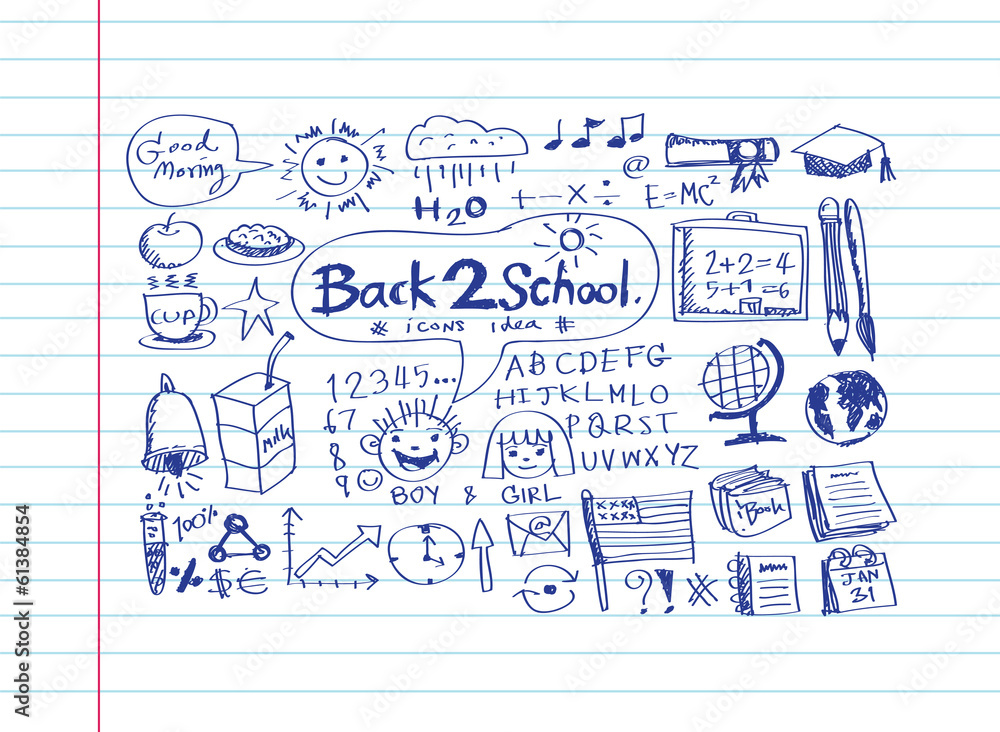 Good
Moring
H2O
@
+ - × ÷
E=MC²
Back 2 School.
# icons idea #
2+2=4
5+1=6
CUP
Milk
1 2 3 4 5 ...
6 7
8
9
A B C D E F G
H I J K L M L O
P Q R S T
U V W X Y Z
BOY & GIRL
100%
%
$ €
@
? !
iBook
JAN
31
Adobe Stock | #61384854